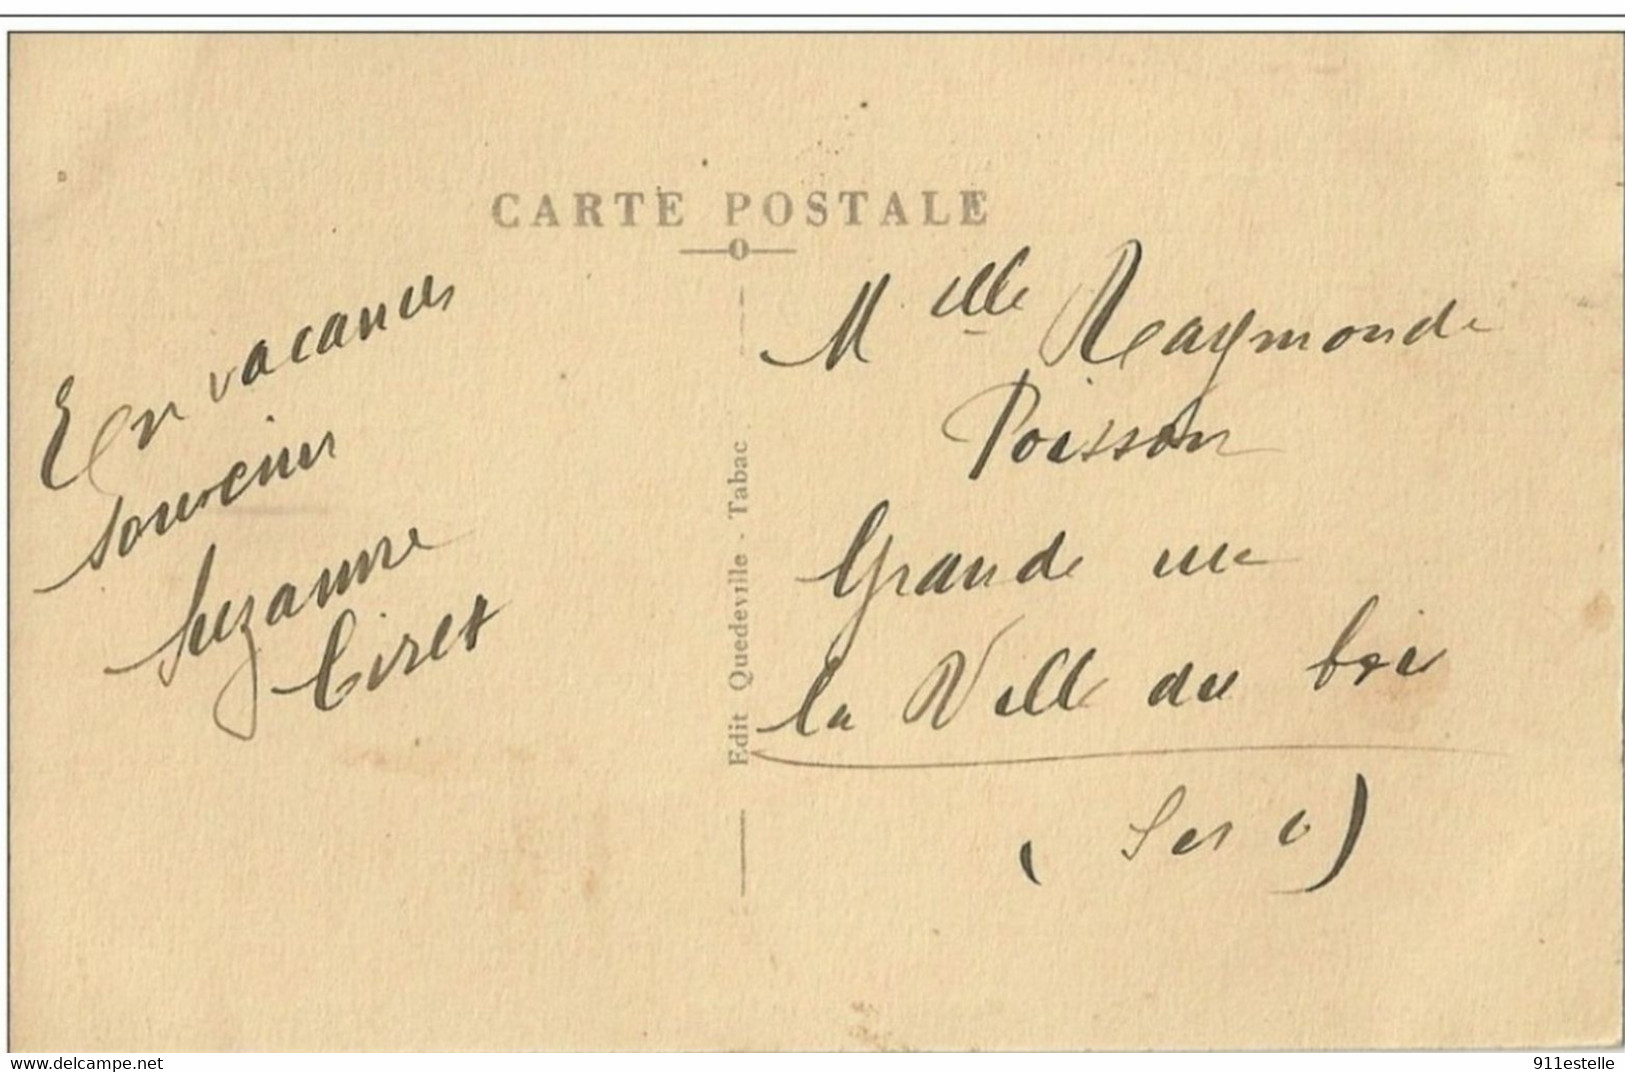 CARTE POSTALE
En vacances
souvenir
Suzanne
Ciret
Edit Quedeville - Tabac
Melle Raymonde
Poisson
Grande rue
la Ville du bois
(S et O)
delcampe.net
911estelle